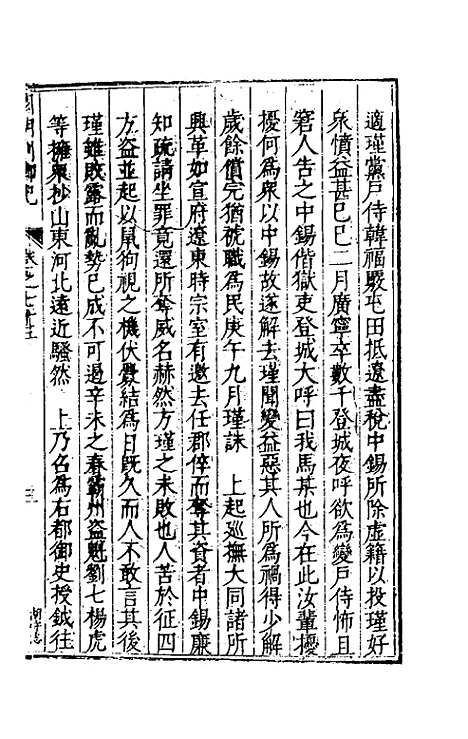 適瑾黨戶侍韓福覈屯田抵遼盡稅中錫所除虛籍以投瑾好
衆憤益甚己巳二月廣寧卒數千登城夜呼欲為變戶侍怖且
窘人告之中錫偕獄吏登城大呼曰我馬某也今在此汝輩擾
擾何為衆以中錫故遂解去瑾聞變益惡其人所為禍得少解
歲餘償完猶褫職為民庚午九月瑾誅　上起巡撫大同諸所
興革如宣府遼東時宗室有邀去任郡倅而奪其資者中錫廉
知疏請坐罪竟還所奪威名赫然方瑾之未敗也人苦於征四
方盜並起以鼠狗視之機伏釁結為日既久而人不敢言其後
瑾雖敗露而亂勢已成不可遏辛未之春霸州盜魁劉七楊虎
等擁衆抄山東河北遠近騷然　上乃召為右都御史授鉞往
三